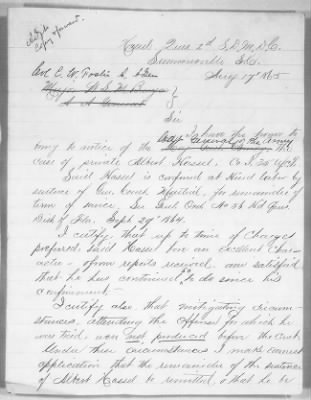 Head Qrs 2d S.D.M.D.C.
Summerville S.C.
Aug 17th 1865
Col C. W. Foster
Sir
I have the honor to
Adjt General of the Army
my to notice of the
case of private Albert Hassel. Co I. 35
Said Hassel is confined at Hard labor by
sentence of Gen. Court Martial, for remainder of
term of service, See Genl Ord No 38 Hd Qrs
Dist of Fla. Sept 29" 1864.
I certify that up to time of Charges
preferred, Said Hassel bore an excellent Char-
acter - from reports received, am satisfied
that he has continued so to do since his
confinement.
I certify also that mitigating circum-
stances, attending the Offense for which he
was tried, were not produced before the Court.
Under these circumstances I make earnest
application that the remainder of the sentence
of Albert Hassel be remitted, & that he be